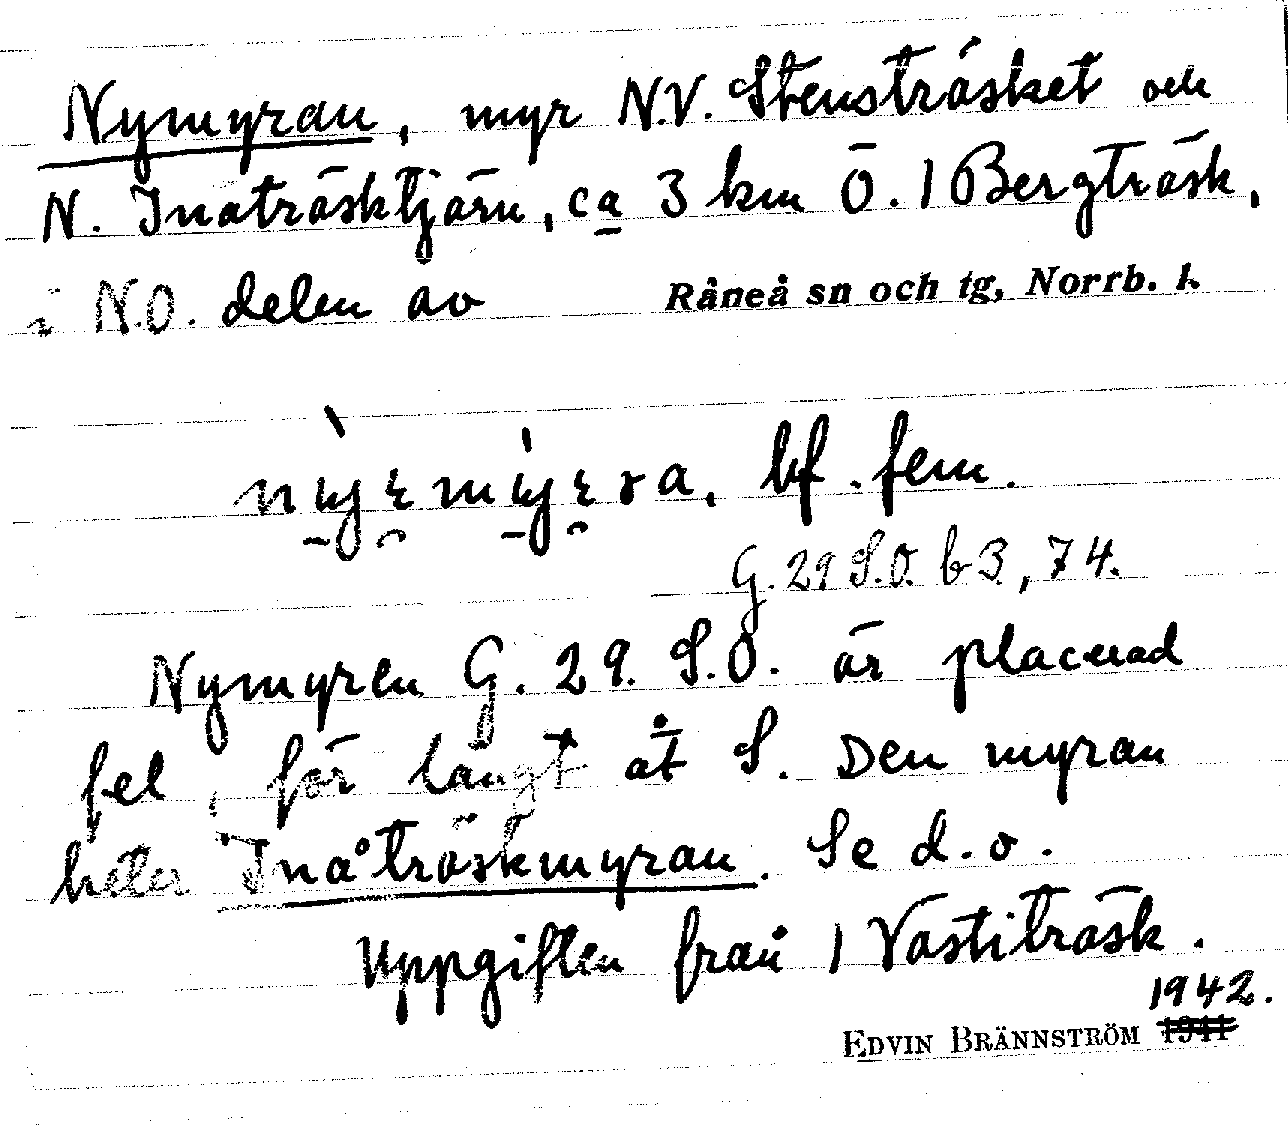 Nymyran, myr N.V. Stensträsket och
N. Inåträsktjärn, ca 3 km Ö. 1 Bergträsk,
i N.O. delen av Råneå sn och tg, Norrb. l.
bf. fem.
G. 29 S.O. b 3, 74.
Nymyren G. 29. S.O. är placerad
fel, för långt åt S. Den myran
heter Inåträskmyran. Se d.o.
Uppgiften från 1 Västiträsk.
1942.
EDVIN BRÄNNSTRÖM 1941